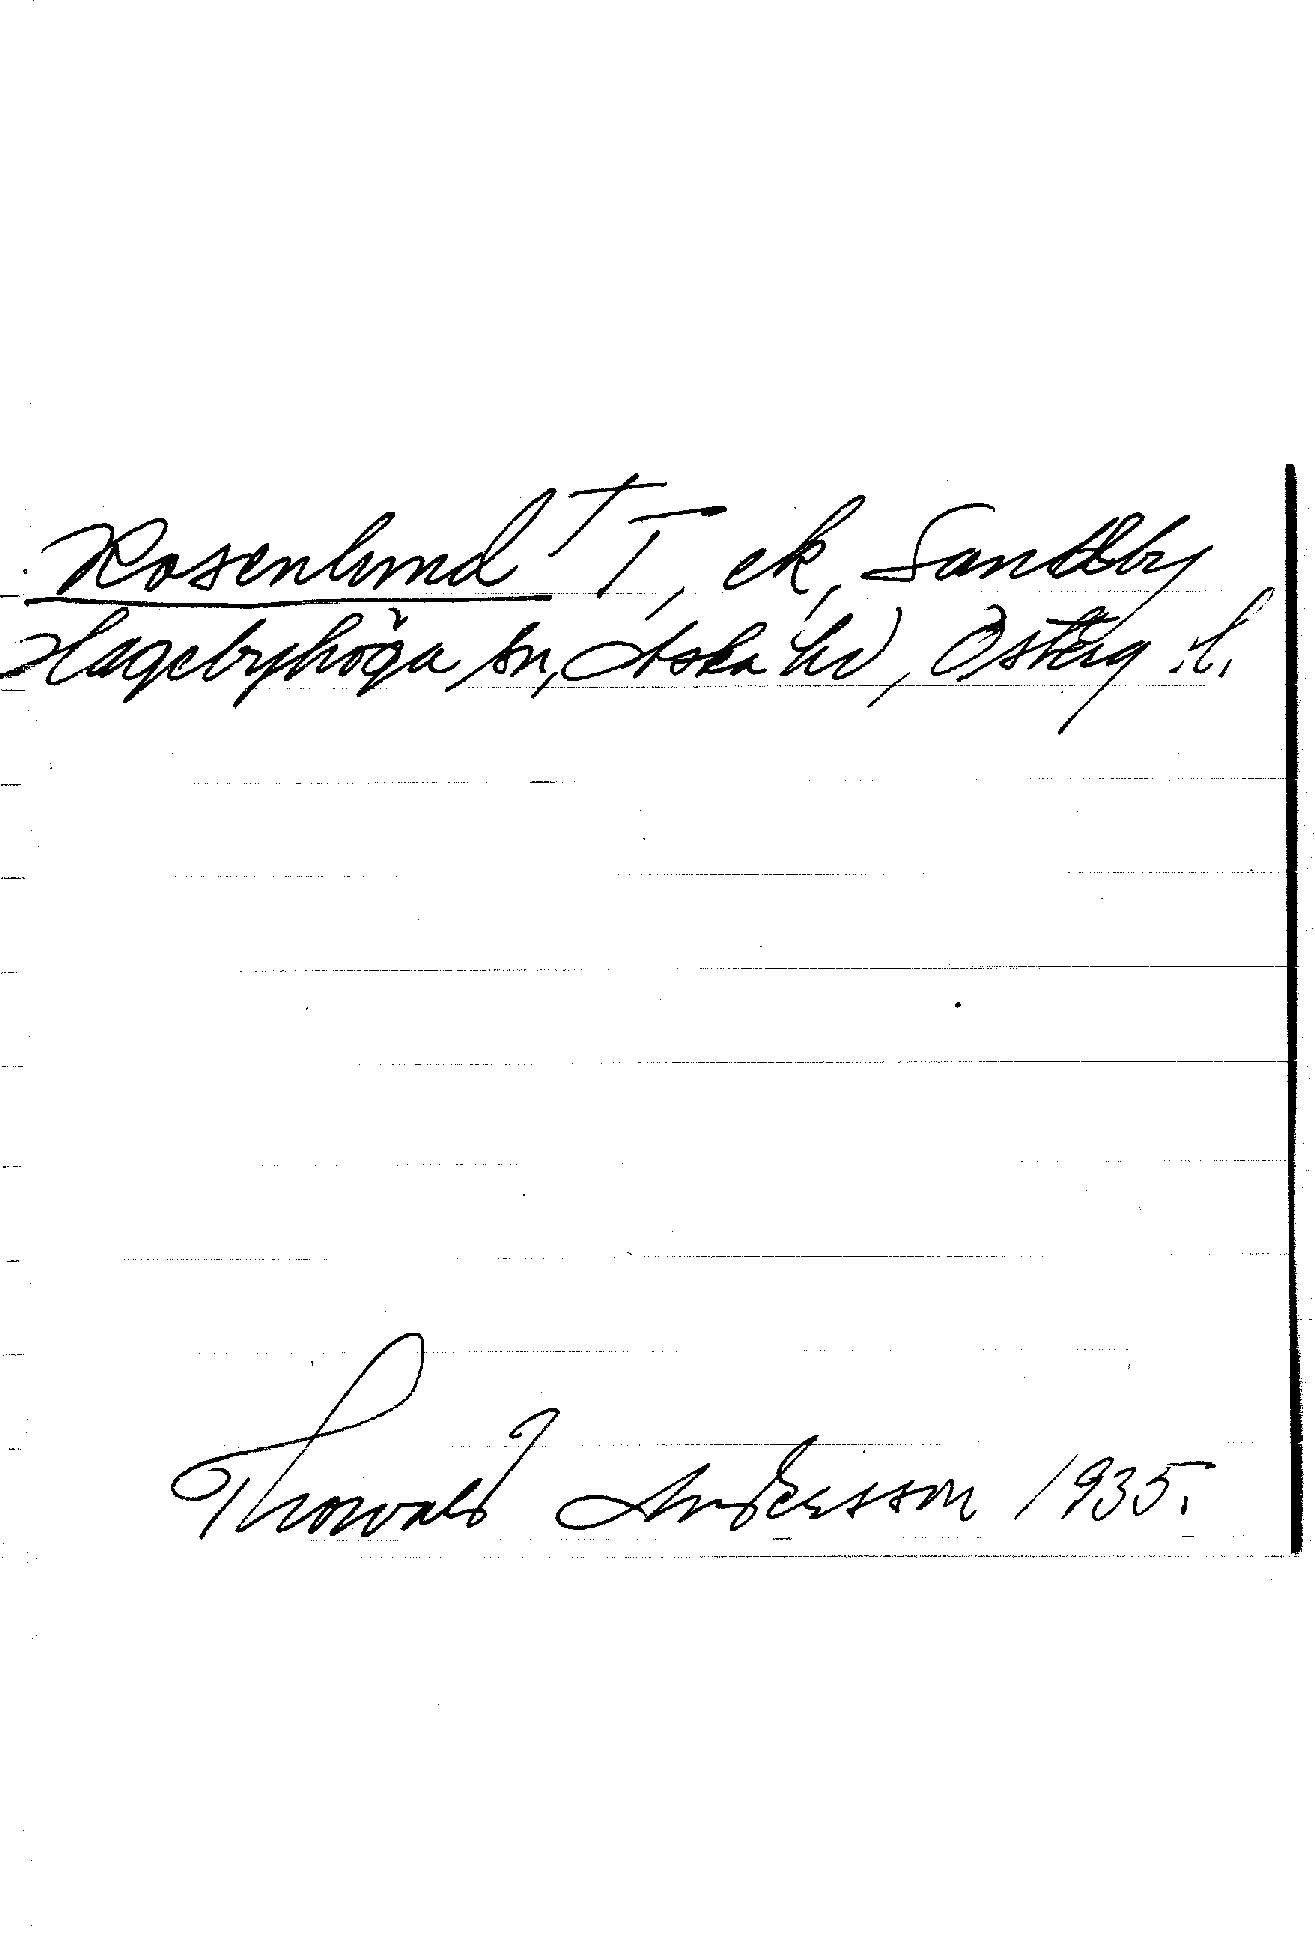 Rosenlund † T, ek, Sandby
Hagebyhöga sn, Aska hd, Österg .l.
Thorvald Andersson 1935.